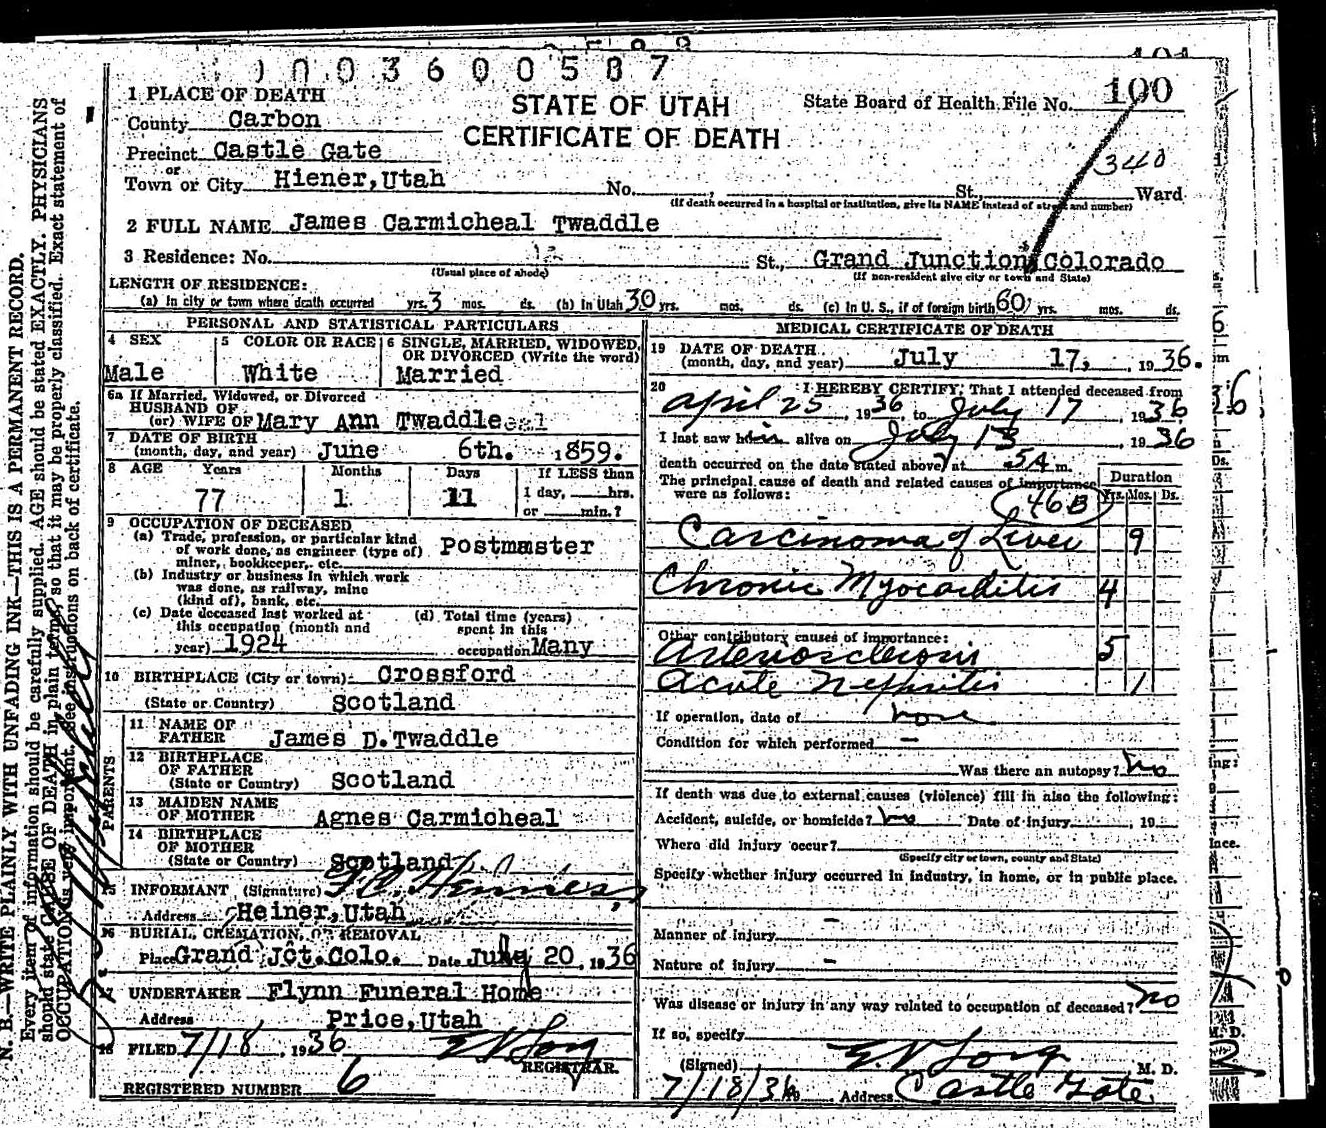 N. B.—WRITE PLAINLY WITH UNFADING INK—THIS IS A PERMANENT RECORD.
Every item of information should be carefully supplied. AGE should be stated EXACTLY. PHYSICIANS
should state CAUSE OF DEATH in plain terms, so that it may be properly classified. Exact statement of
OCCUPATION is very important. See instructions on back of certificate.
0003600587
STATE OF UTAH
CERTIFICATE OF DEATH
State Board of Health File No. 100
340
1 PLACE OF DEATH
County Carbon
Precinct Castle Gate
or
Town or City Hiener, Utah No. , St., Ward
(If death occurred in a hospital or institution, give its NAME instead of street and number)
2 FULL NAME James Carmicheal Twaddle
3 Residence: No. St., Grand Junction, Colorado
(Usual place of abode) (If non-resident give city or town and State)
LENGTH OF RESIDENCE:
(a) In city or town where death occurred yrs. 3 mos. ds. (b) In Utah 30 yrs. mos. ds. (c) In U. S., if of foreign birth 60 yrs. mos. ds.
PERSONAL AND STATISTICAL PARTICULARS
4 SEX
Male
5 COLOR OR RACE
White
6 SINGLE, MARRIED, WIDOWED, OR DIVORCED (Write the word)
Married
6a If Married, Widowed, or Divorced
HUSBAND OF
(or) WIFE OF Mary Ann Twaddle
7 DATE OF BIRTH
(month, day, and year) June 6th. 1859.
8 AGE Years Months Days If LESS than
77 1 11 1 day, hrs.
or min.?
9 OCCUPATION OF DECEASED
(a) Trade, profession, or particular kind
of work done, as engineer (type of) Postmaster
miner, bookkeeper, etc.
(b) Industry or business in which work
was done, as railway, mine
(kind of), bank, etc.
(c) Date deceased last worked at
this occupation (month and
year) 1924
(d) Total time (years)
spent in this
occupation Many
10 BIRTHPLACE (City or town) Crossford
(State or Country) Scotland
PARENTS
11 NAME OF
FATHER James D. Twaddle
12 BIRTHPLACE
OF FATHER
(State or Country) Scotland
13 MAIDEN NAME
OF MOTHER Agnes Carmicheal
14 BIRTHPLACE
OF MOTHER
(State or Country) Scotland
15 INFORMANT (Signature)
Address Heiner, Utah
16 BURIAL, CREMATION, OR REMOVAL
Place Grand Jct. Colo. Date July 20, 1936
17 UNDERTAKER Flynn Funeral Home
Address Price, Utah
18 FILED 7/18, 1936
REGISTRAR.
REGISTERED NUMBER 6
MEDICAL CERTIFICATE OF DEATH
19 DATE OF DEATH
(month, day, and year) July 17, 1936.
20 I HEREBY CERTIFY: That I attended deceased from
April 25, 1936, to July 17, 1936
I last saw him alive on July 13, 1936
death occurred on the date stated above, at 5A m.
The principal cause of death and related causes of importance
were as follows:
Duration
Yrs. Mos. Ds.
46B
Carcinoma of Liver 9
Chronic Myocarditis 4
Other contributory causes of importance:
Arteriosclerosis 5
Acute Nephritis 1
If operation, date of none
Condition for which performed —
Was there an autopsy? no
If death was due to external causes (violence) fill in also the following:
Accident, suicide, or homicide? no Date of injury , 19
Where did injury occur?
(Specify city or town, county and State)
Specify whether injury occurred in industry, in home, or in public place.
Manner of injury —
Nature of injury —
Was disease or injury in any way related to occupation of deceased? no
If so, specify
(Signed) M. D.
7/18/36 Address Castle Gate